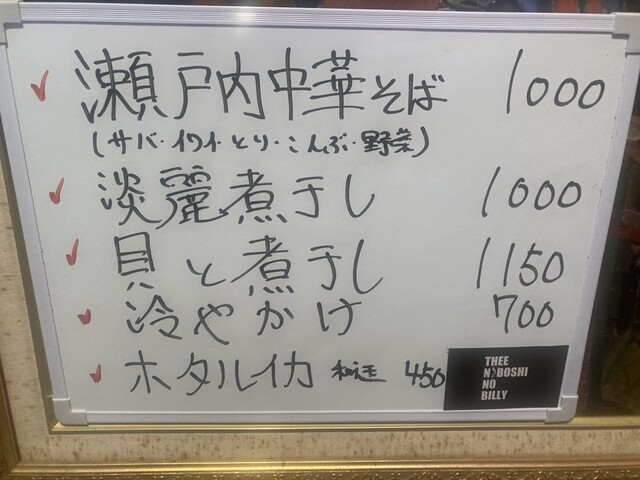 瀬戸内中華そば 1000
(サバ・イワイ・とり・こんぶ・野菜)
淡麗煮干し 1000
貝と煮干し 1150
冷やかけ 700
ホタルイカ 和え玉 450
THEE
NIBOSHI
NO
BILLY